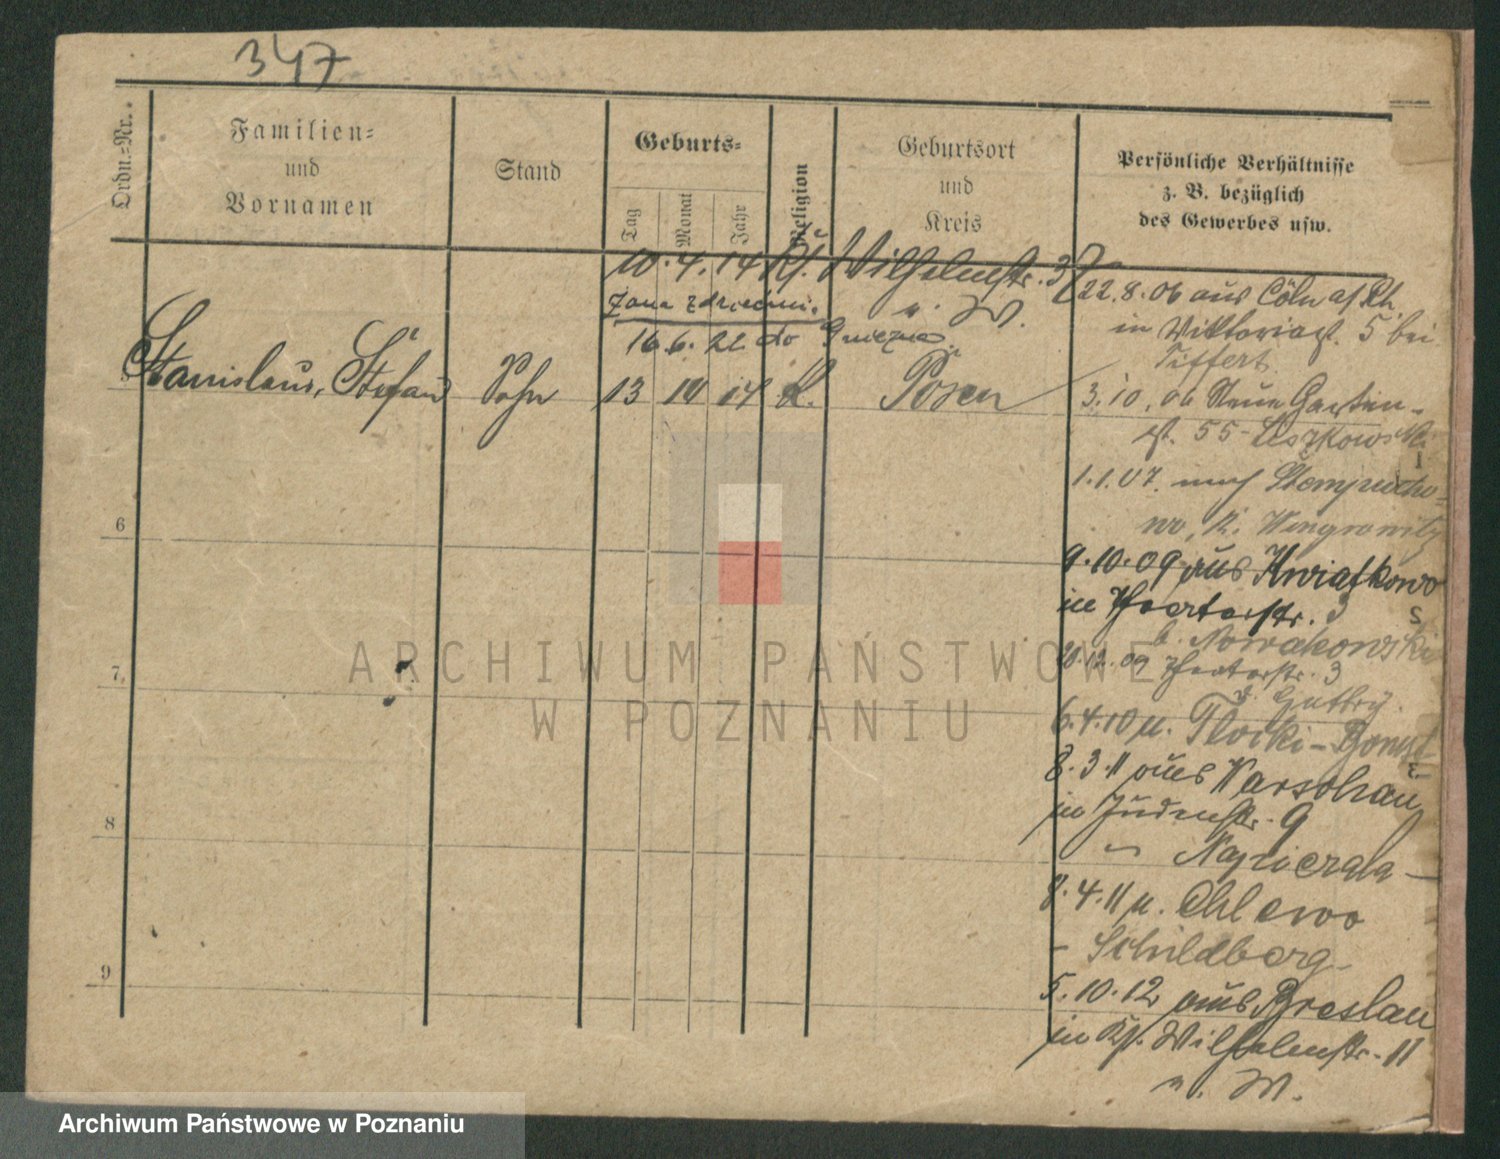 347
Ordn.-Nr.
Familien-
und
Vornamen
Stand
Geburts-
Tag
Monat
Jahr
Religion
Geburtsort
und
Kreis
Persönliche Verhältnisse
z. B. bezüglich
des Gewerbes usw.
10.4.14 Kl. Wilhelmstr. 37
v. W.
żona z dziećmi
16.6.22 do Gniezna
Stanislaus, Stefan Sohn 13 14 K. Posen
22.8.06 aus Cöln a/Rh
in Viktoriast. 5 bei
Tiffert
3.10.06 Neue Garten-
st. 55 Leszkowski
1.1.07. nach
wo, K. Wongrowitz
9.10.09 aus Kwiatkowo
in Theaterstr. 3
b. Nowakowski
12.09 Theaterstr. 3
6.4.10 n. Tloki - Bomst
8.3.11 aus Warschau
in Judenstr. 9
Napierala
8.4.11 n. Chlewo
- Schildberg -
5.10.12 aus Breslau
in Kl. Wilhelmstr. 11
v. W.
6
7
8
9
ARCHIWUM PAŃSTWOWE
W POZNANIU
Archiwum Państwowe w Poznaniu